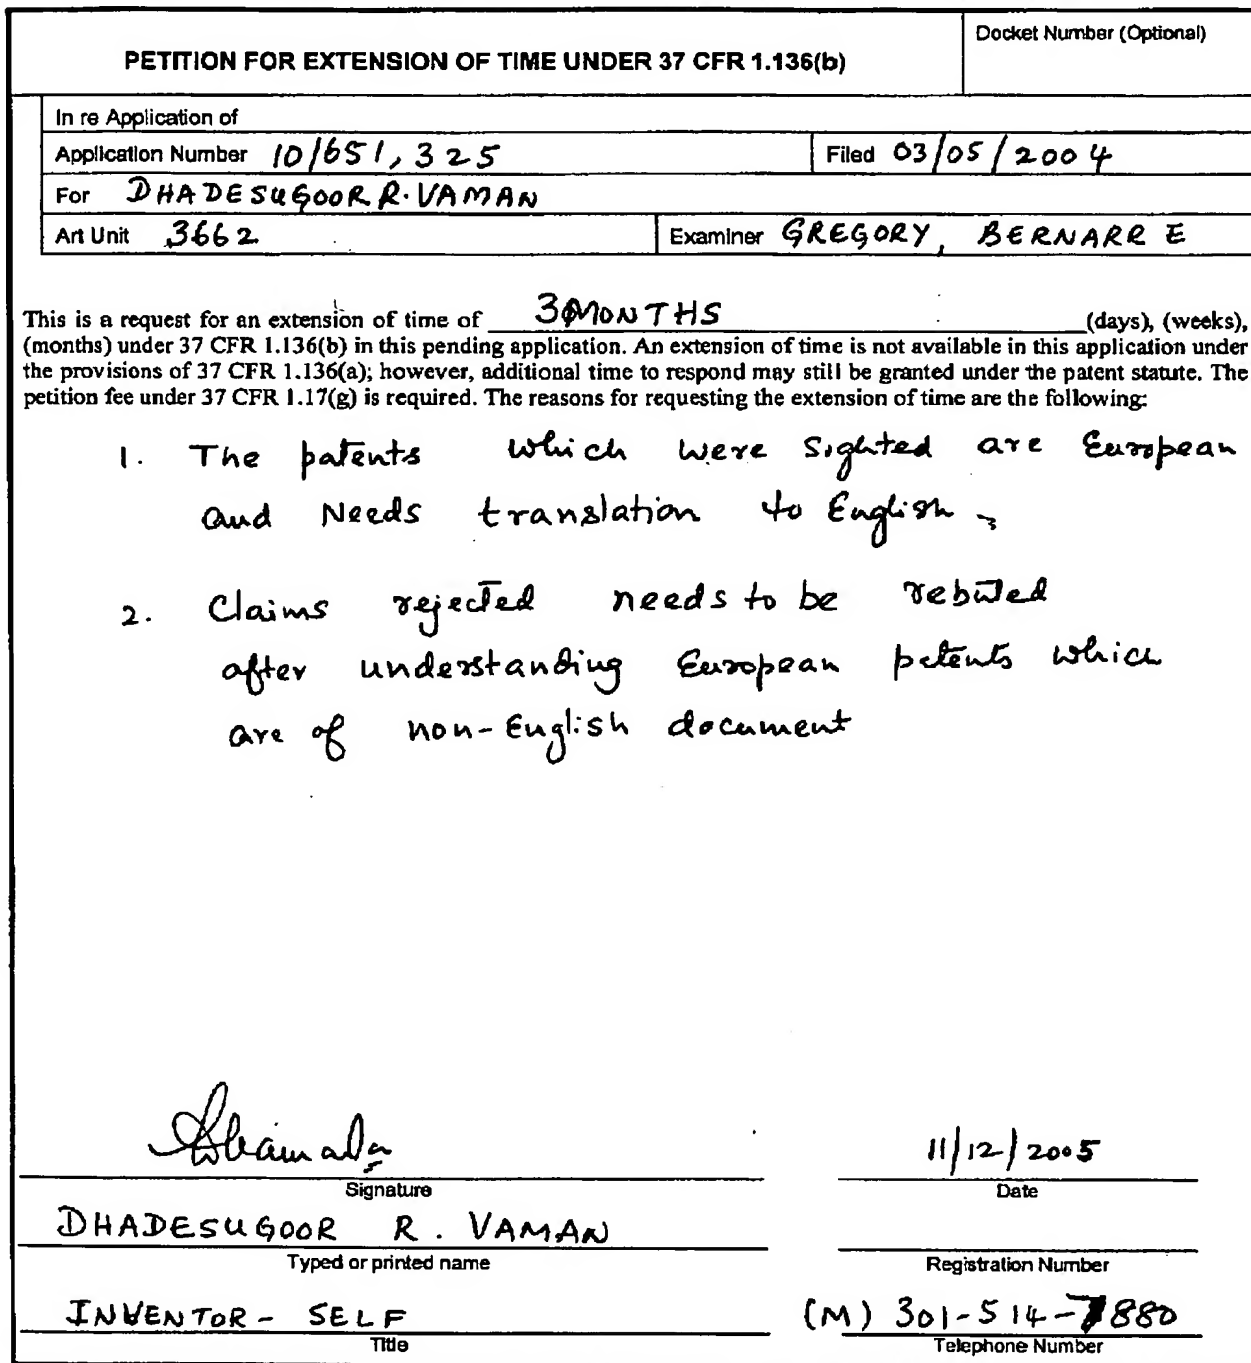 PETITION FOR EXTENSION OF TIME UNDER 37 CFR 1.136(b)
Docket Number (Optional)
In re Application of
Application Number 10/651,325
Filed 03/05/2004
For DHADESUGOOR R. VAMAN
Art Unit 3662
Examiner GREGORY, BERNARR E
This is a request for an extension of time of 3 MONTHS (days), (weeks),
(months) under 37 CFR 1.136(b) in this pending application. An extension of time is not available in this application under
the provisions of 37 CFR 1.136(a); however, additional time to respond may still be granted under the patent statute. The
petition fee under 37 CFR 1.17(g) is required. The reasons for requesting the extension of time are the following:
1. The patents which were sighted are European
and Needs translation to English.
2. Claims rejected needs to be rebuted
after understanding European patents which
are of non-English document
11/12/2005
Signature
Date
DHADESUGOOR R. VAMAN
Typed or printed name
Registration Number
INVENTOR - SELF
(M) 301-514-7880
Title
Telephone Number